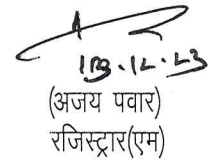 19.12.23
(अजय पवार)
रजिस्ट्रार(एम)